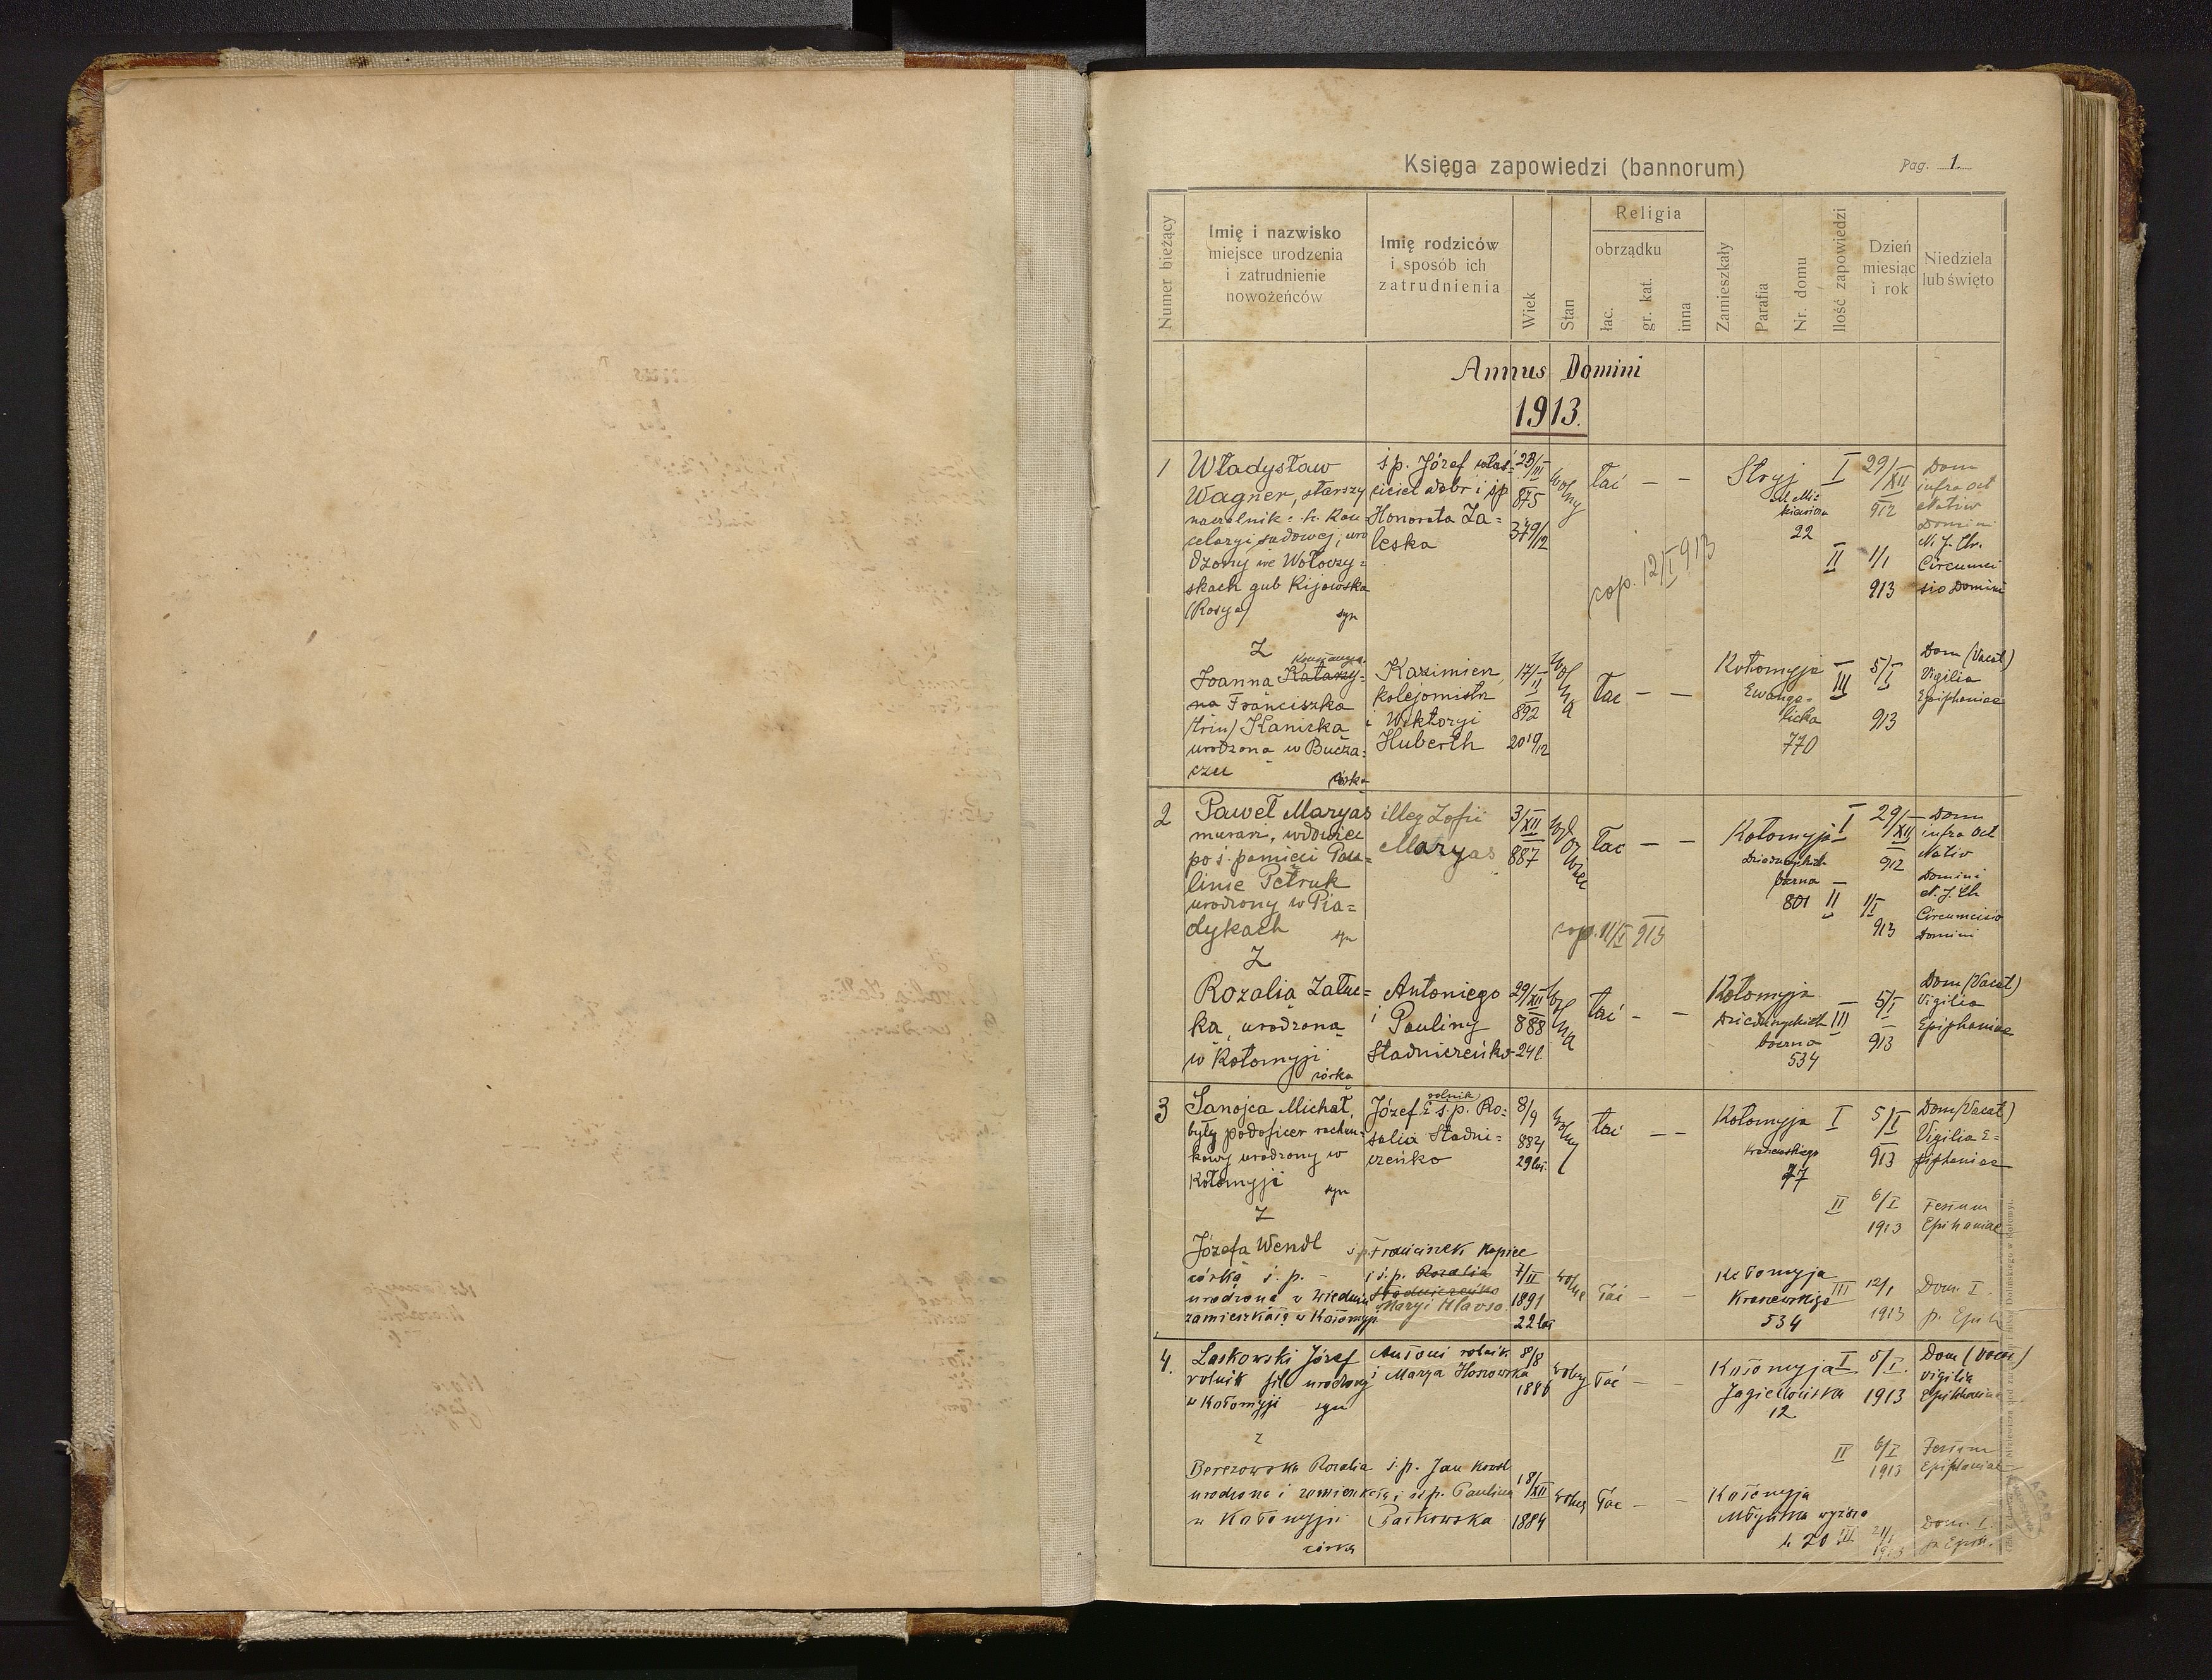 Księga zapowiedzi (bannorum)
Pag. 1.
Numer bieżący
Imię i nazwisko
miejsce urodzenia
i zatrudnienie
nowożeńców
Imię rodziców
i sposób ich
zatrudnienia
Wiek
Stan
Religia
obrządku
łac.
gr. kat.
inna
Zamieszkały
Parafia
Nr. domu
Ilość zapowiedzi
Dzień
miesiąc
i rok
Niedziela
lub święto
Annus Domini
1913.
1
Władysław
Wagner, starszy
celaryi sadowej, uro
dzony we Wołoczy=
skach gub Kijowska
(Rosya)
syn
ś p. Józef właś=
ciciel dobr i śp
Honorata Za=
leska
23/III
875
37 9/12
wolny
łać — —
cop. 12/I 913
Stryj
22
I
29/XII
912
Dom
infra Oct
Nativ
Domini
N. J. Chr.
II
1/1
913
Circumci
sio Domini
Z
Joanna Katarzy=
na Franciszka
Kaniżka
urodzona w Bucza=
czu
córka
Kazimierz
kolejomistrz
i Wiktoryi
Huberth
17/II
892
20 10/12
wolna
łac — —
Kołomyja
Ewange=
licka
770
III
5/I
913
Dom (Vacat)
Vigilia
Epiphaniae
2
Paweł Maryas
murarz, wdowiec
po ś. pamięci Pau=
linie Petruk
urodzony w Pia=
dykach
syn
illeg Zofii
Maryas
3/XII
887
wdowiec
łac — —
cop. 11/I 913
Kołomyja
801
I
29/XII
912
Dom
infra Oct
Nativ
Domini
N. J. Ch
II
1/I
913
Circumcisio
Domini
Z
Rozalia Załuc=
ka, urodzona
w Kołomyji
córka
Antoniego
i Pauliny
Stadniczeńko
29/XII
888
24 l
wolna
łać — —
Kołomyja
Dzieduszyckich
boczna
534
III
5/I
913
Dom (Vacat)
Vigilia
Epiphaniae
3
Sanojca Michał,
były podoficer rachun=
kowy urodzony w
Kołomyji
syn
Józef rolnik i ś. p. Ro=
zalia Stadni=
czeńko
8/9
884
29 lat
wolny
łać — —
Kołomyja
Kraszewskiego
77
I
5/I
913
Dom (Vacat)
Vigilia E=
piphaniae
II
6/I
1913
Festum
Epihaniae
Z
Józefa Wendl
córka ś. p. -
urodzona w Wiedniu
zamieszkała w Kołomyji
ś p. Franciszek
i ś. p. Rozalia
Stadniczeńko
Maryi Hlavsa
7/II
1891
22 lat
wolna
łać — —
Kołomyja
Kraszewskiego
534
III
12/1
1913
Dom. I.
p. Epih
4.
Laskowski Józef
rolnik fil urodzony
w Kołomyji syn
Antoni rolnik
i Marya Hoszowska
8/8
1886
wolny
łać —
Kołomyja
Jagiellońska
12
I
5/I.
1913
Dom (Vacat)
vigilia
Epiphaniae
II
6/I
1913
Festum
Epiphaniae
z
Berezowska Rozalia
urodzona i zamieszkała
w Kołomyji
córka
ś. p. Jan kowal
i ś. p. Paulina
18/XII
1884
wolna
łac — —
Kołomyja
Młyńska wyższa
20
III
Dom. I.
p. Epih.